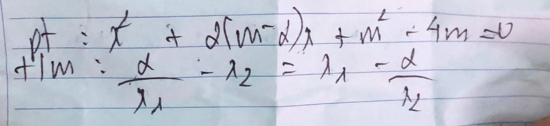 pt : x² + 2(m-2)x + m² - 4m = 0
tìm : 2/x₁ - x₂ = x₁ - 2/x₂